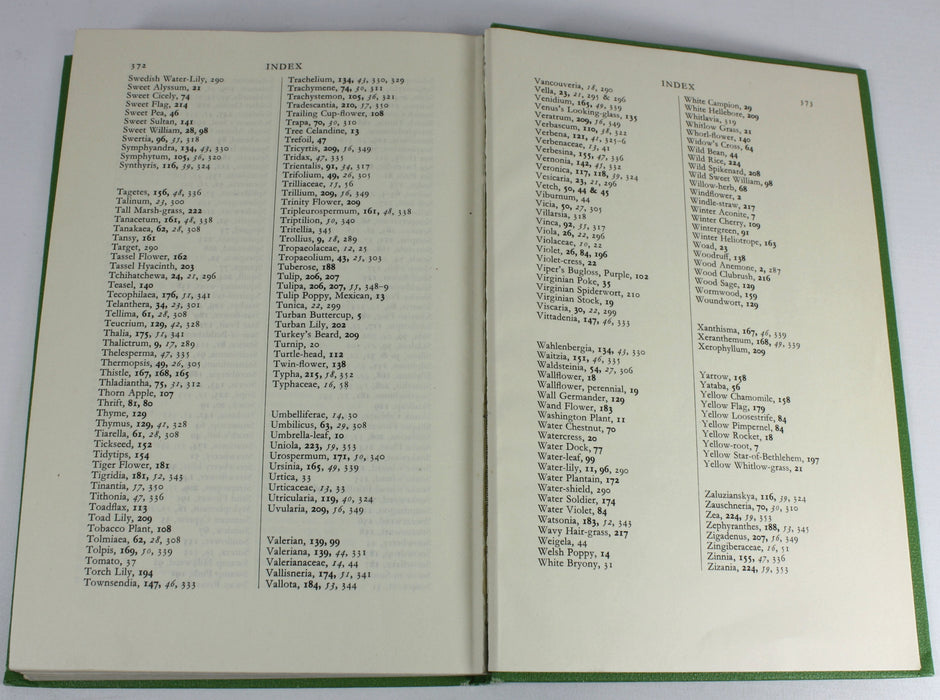 372
INDEX
Swedish Water-Lily, 290
Sweet Alyssum, 21
Sweet Cicely, 74
Sweet Flag, 214
Sweet Pea, 46
Sweet Sultan, 141
Sweet William, 28, 98
Swertia, 96, 35, 318
Symphyandra, 134, 43, 330
Symphytum, 105, 36, 320
Synthyris, 116, 39, 324
Tagetes, 156, 48, 336
Talinum, 23, 300
Tall Marsh-grass, 222
Tanacetum, 161, 48, 338
Tanakaea, 62, 28, 308
Tansy, 161
Target, 290
Tassel Flower, 162
Tassel Hyacinth, 203
Tchihatchewa, 24, 21, 296
Teasel, 140
Tecophilaea, 176, 51, 341
Telanthera, 34, 23, 301
Tellima, 61, 28, 308
Teucrium, 129, 42, 328
Thalia, 175, 51, 341
Thalictrum, 9, 17, 289
Thelesperma, 47, 335
Thermopsis, 49, 26, 305
Thistle, 167, 168, 165
Thladiantha, 75, 31, 312
Thorn Apple, 107
Thrift, 81, 80
Thyme, 129
Thymus, 129, 41, 328
Tiarella, 61, 28, 308
Tickseed, 152
Tidytips, 154
Tiger Flower, 181
Tigridia, 181, 52, 343
Tinantia, 57, 350
Tithonia, 47, 336
Toadflax, 113
Toad Lily, 209
Tobacco Plant, 108
Tolmiaea, 62, 28, 308
Tolpis, 169, 50, 339
Tomato, 37
Torch Lily, 194
Townsendia, 147, 46, 333
Trachelium, 134, 43, 330, 329
Trachymene, 74, 30, 311
Trachystemon, 105, 36, 321
Tradescantia, 210, 57, 350
Trailing Cup-flower, 108
Trapa, 70, 30, 310
Tree Celandine, 13
Trefoil, 47
Tricyrtis, 209, 56, 349
Tridax, 47, 335
Trientalis, 91, 34, 317
Trifolium, 49, 26, 305
Trilliaceae, 15, 56
Trillium, 209, 56, 349
Trinity Flower, 209
Tripleurospermum, 161, 48, 338
Triptilion, 50, 340
Tritellia, 345
Trollius, 9, 18, 289
Tropaeolaceae, 12, 25
Tropaeolium, 43, 25, 303
Tuberose, 188
Tulip, 206, 207
Tulipa, 206, 207, 55, 348–9
Tulip Poppy, Mexican, 13
Tunica, 22, 299
Turban Buttercup, 5
Turban Lily, 202
Turkey's Beard, 209
Turnip, 20
Turtle-head, 112
Twin-flower, 138
Typha, 215, 58, 352
Typhaceae, 16, 58
Umbelliferae, 14, 30
Umbilicus, 63, 29, 308
Umbrella-leaf, 10
Uniola, 223, 59, 353
Urospermum, 171, 50, 340
Ursinia, 165, 49, 339
Urtica, 33
Urticaceae, 13, 33
Utricularia, 119, 40, 324
Uvularia, 209, 56, 349
Valerian, 139, 99
Valeriana, 139, 44, 331
Valerianaceae, 14, 44
Vallisneria, 174, 51, 341
Vallota, 184, 53, 344
INDEX
373
Vancouveria, 18, 290
Vella, 23, 21, 295 & 296
Venidium, 165, 49, 339
Venus's Looking-glass, 135
Veratrum, 209, 56, 349
Verbascum, 110, 38, 322
Verbena, 121, 41, 325–6
Verbenaceae, 13, 41
Verbesina, 155, 47, 336
Vernonia, 142, 45, 332
Veronica, 117, 118, 39, 324
Vesicaria, 23, 21, 296
Vetch, 50, 44 & 45
Viburnum, 44
Vicia, 50, 27, 305
Villarsia, 318
Vinca, 92, 35, 317
Viola, 26, 22, 296
Violaceae, 10, 22
Violet, 26, 84, 196
Violet-cress, 22
Viper's Bugloss, Purple, 102
Virginian Poke, 35
Virginian Spiderwort, 210
Virginian Stock, 19
Viscaria, 30, 22, 299
Vittadenia, 147, 46, 333
Wahlenbergia, 134, 43, 330
Waitzia, 151, 46, 335
Waldsteinia, 54, 27, 306
Wallflower, 18
Wallflower, perennial, 19
Wall Germander, 129
Wand Flower, 183
Washington Plant, 11
Water Chestnut, 70
Watercress, 20
Water Dock, 77
Water-leaf, 99
Water-lily, 11, 96, 290
Water Plantain, 172
Water-shield, 290
Water Soldier, 174
Water Violet, 84
Watsonia, 183, 52, 343
Wavy Hair-grass, 217
Weigela, 44
Welsh Poppy, 14
White Bryony, 31
White Campion, 29
White Hellebore, 209
Whitlavia, 319
Whitlow Grass, 21
Whorl-flower, 140
Widow's Cross, 64
Wild Bean, 44
Wild Rice, 224
Wild Spikenard, 208
Wild Sweet William, 98
Willow-herb, 68
Windflower, 2
Windle-straw, 217
Winter Aconite, 7
Winter Cherry, 109
Wintergreen, 91
Winter Heliotrope, 163
Woad, 23
Woodruff, 138
Wood Anemone, 2, 287
Wood Clubrush, 216
Wood Sage, 129
Wormwood, 159
Woundwort, 129
Xanthisma, 167, 46, 339
Xeranthemum, 168, 49, 339
Xerophyllum, 209
Yarrow, 158
Yataba, 56
Yellow Chamomile, 158
Yellow Flag, 179
Yellow Loosestrife, 84
Yellow Pimpernel, 84
Yellow Rocket, 18
Yellow-root, 7
Yellow Star-of-Bethlehem, 197
Yellow Whitlow-grass, 21
Zaluzianskya, 116, 39, 324
Zauschneria, 70, 30, 310
Zea, 224, 59, 353
Zephyranthes, 188, 53, 345
Zigadenus, 207, 56, 349
Zingiberaceae, 16, 51
Zinnia, 155, 47, 336
Zizania, 224, 59, 353